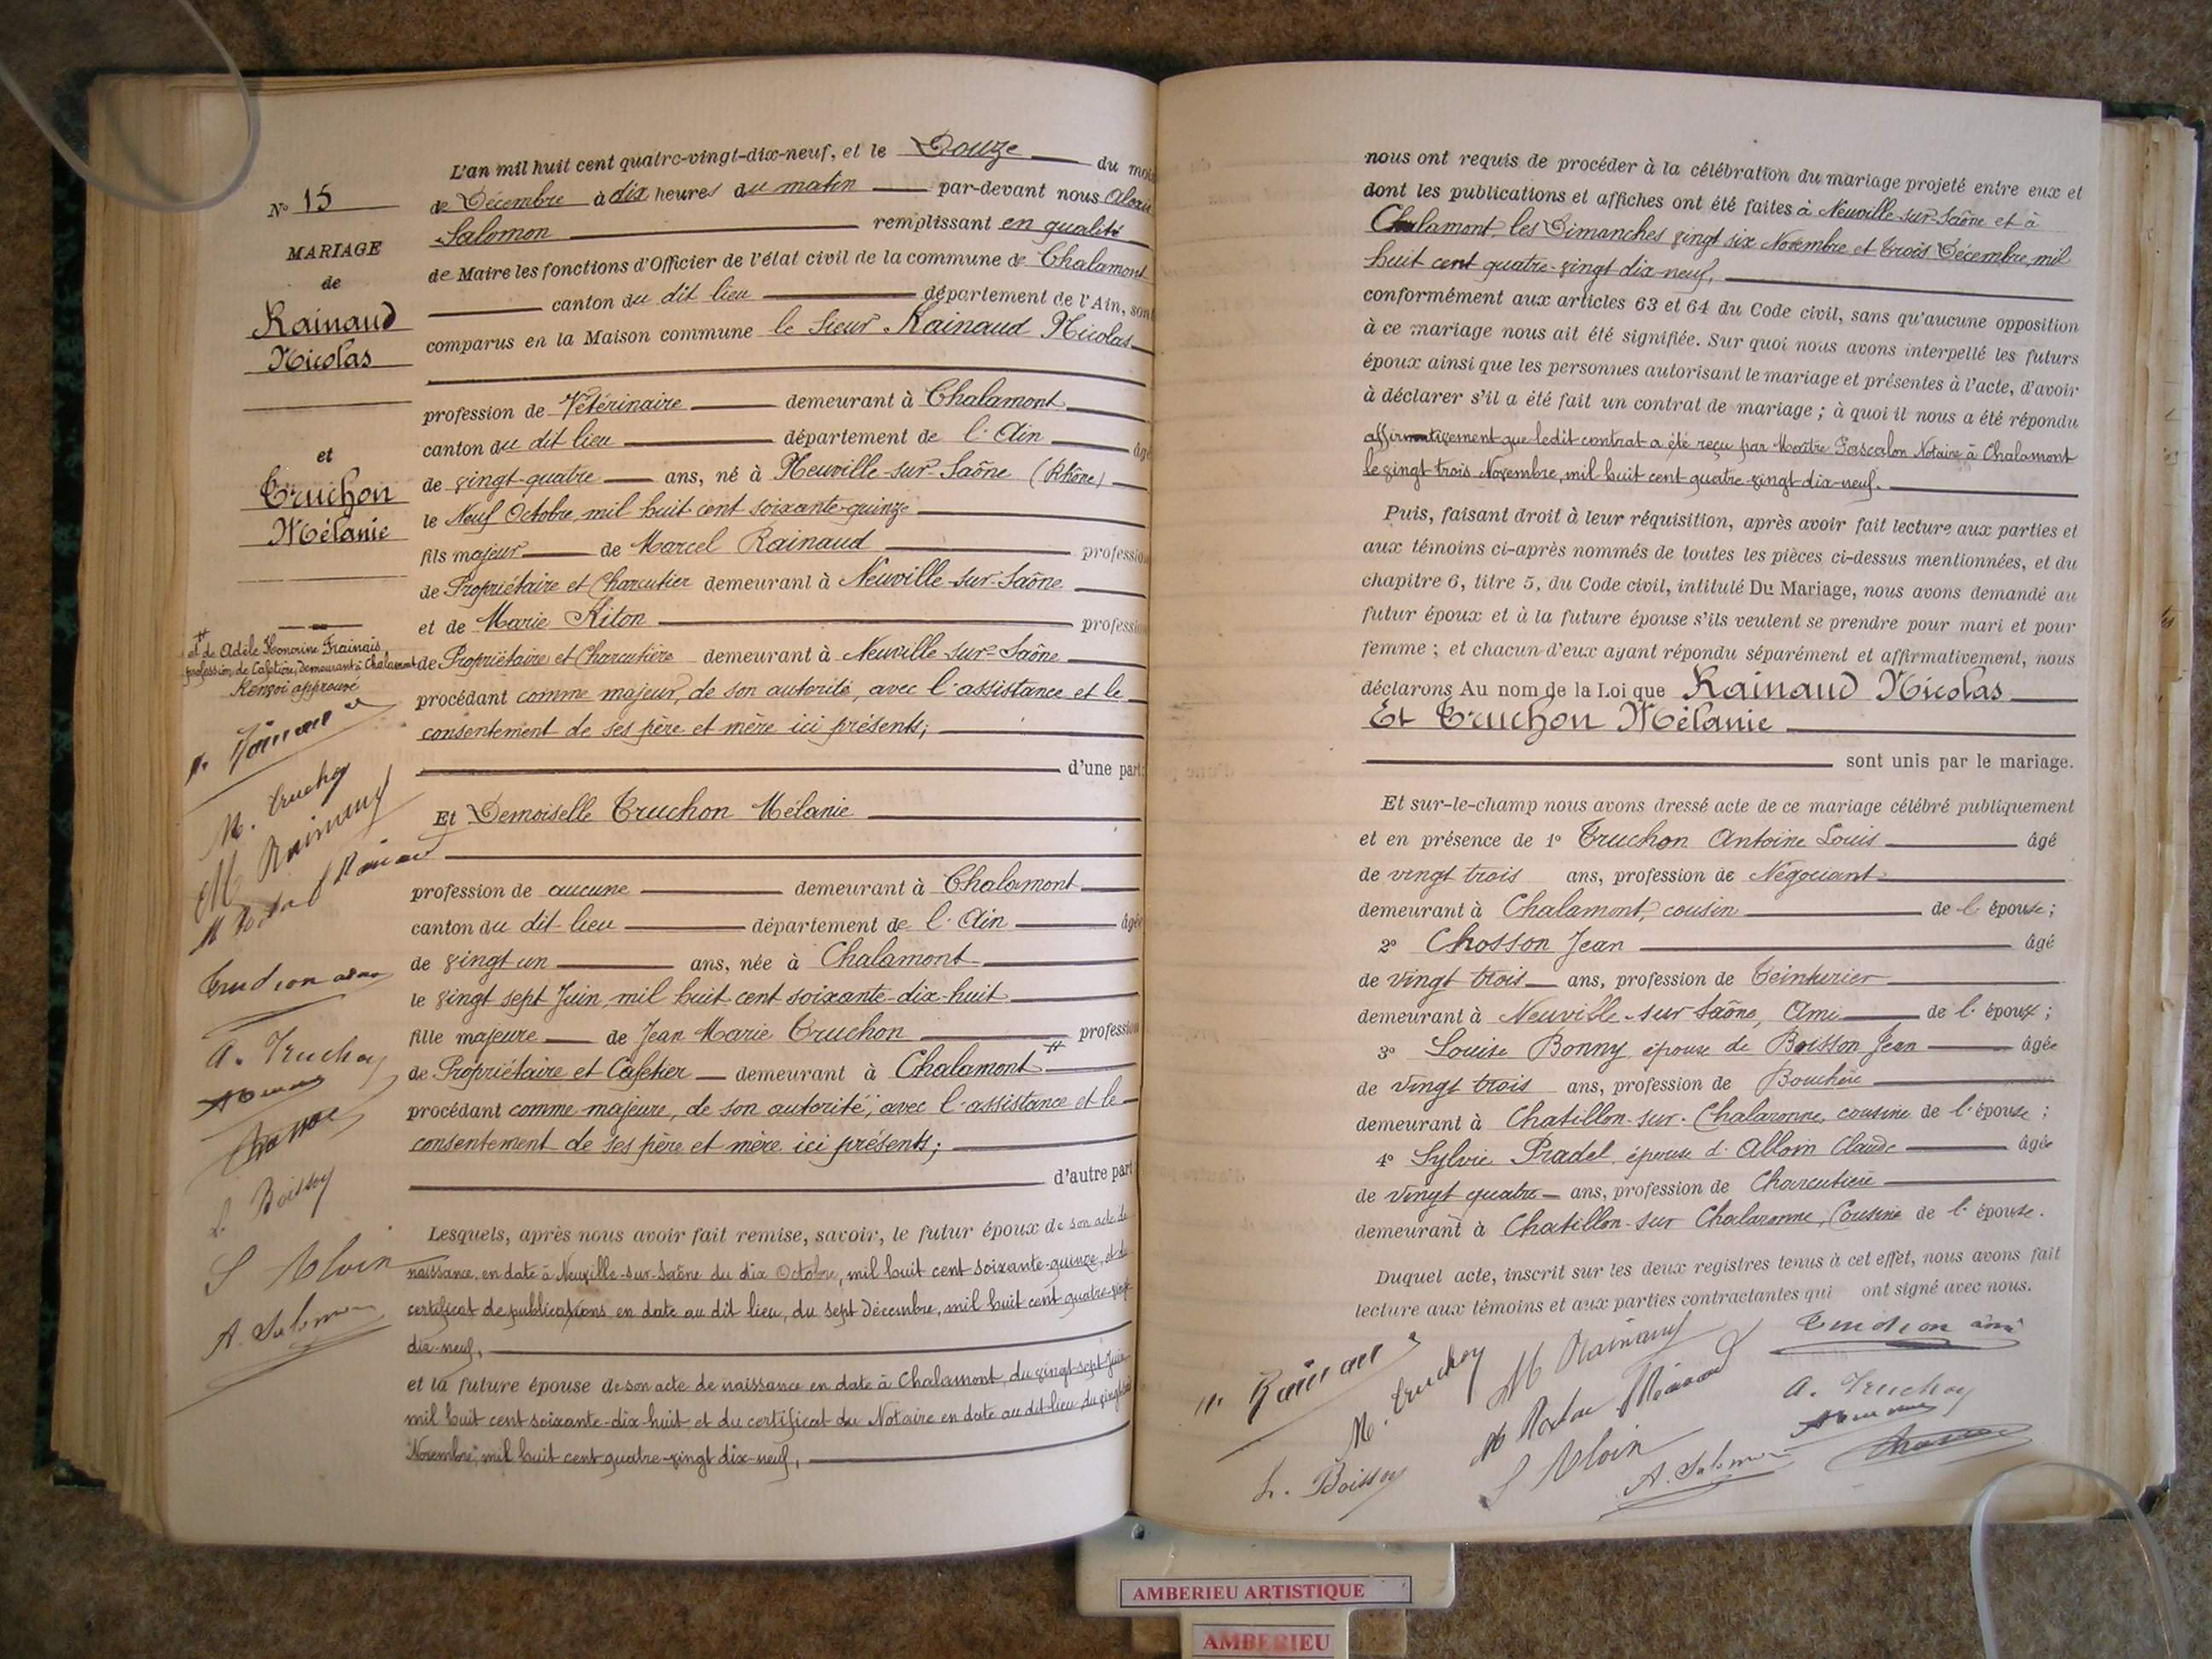 N° 15
MARIAGE
de
Rainaud
Nicolas
et
Truchon
Mélanie
et de Adèle Honorine Frainais,
profession de Cafetière, Demeurant à Chalamont
Renvoi approuvé
M. Truchon
M Rainaud
A. Truchon
L. Boisson
S Aloin
A. Salomon
L'an mil huit cent quatre-vingt-dix-neuf, et le Douze du mois
de Décembre à dix heures du matin par-devant nous
Salomon remplissant en qualité
de Maire les fonctions d'Officier de l'état civil de la commune de Chalamont
canton du dit lieu département de l'Ain, sont
comparus en la Maison commune le Sieur Rainaud Nicolas
profession de Vétérinaire demeurant à Chalamont
canton du dit lieu département de l'Ain âgé
de vingt-quatre ans, né à Neuville-sur-Saône (Rhône)
le Neuf Octobre, mil huit cent soixante-quinze
fils majeur de Marcel Rainaud profession
de Propriétaire et Charcutier demeurant à Neuville-sur-Saône
et de Marie profession
de Propriétaire et Charcutière demeurant à Neuville-sur-Saône
procédant comme majeur, de son autorité, avec l'assistance et le
consentement de ses père et mère ici présents;
d'une part;
Et Demoiselle Truchon Mélanie
profession de aucune demeurant à Chalamont
canton du dit-lieu département de l'Ain âgée
de vingt un ans, née à Chalamont
le vingt sept Juin, mil huit cent soixante-dix-huit
fille majeure de Jean Marie Truchon profession
de Propriétaire et Cafetier demeurant à Chalamont
procédant comme majeure, de son autorité, avec l'assistance et le
consentement de ses père et mère ici présents;
d'autre part
Lesquels, après nous avoir fait remise, savoir, le futur époux de son acte de
naissance, en date à Neuville-sur-Saône du dix Octobre, mil huit cent soixante-quinze, et de
certificat de publications en date au dit lieu, du sept décembre, mil huit cent quatre-vingt
dix-neuf,
et la future épouse de son acte de naissance en date à Chalamont, du vingt-sept Juin
mil huit cent soixante-dix-huit, et du certificat du Notaire en date au dit-lieu, du vingt trois
Novembre, mil huit cent quatre-vingt dix-neuf,
nous ont requis de procéder à la célébration du mariage projeté entre eux et
dont les publications et affiches ont été faites à Neuville-sur-Saône et à
Chalamont, les Dimanches vingt six Novembre et trois Décembre, mil
huit cent quatre-vingt dix-neuf,
conformément aux articles 63 et 64 du Code civil, sans qu'aucune opposition
à ce mariage nous ait été signifiée. Sur quoi nous avons interpellé les futurs
époux ainsi que les personnes autorisant le mariage et présentes à l'acte, d'avoir
à déclarer s'il a été fait un contrat de mariage; à quoi il nous a été répondu
affirmativement que ledit contrat a été reçu par Maître Notaire à Chalamont
le vingt-trois Novembre, mil huit cent quatre-vingt-dix-neuf.
Puis, faisant droit à leur réquisition, après avoir fait lecture aux parties et
aux témoins ci-après nommés de toutes les pièces ci-dessus mentionnées, et du
chapitre 6, titre 5, du Code civil, intitulé Du Mariage, nous avons demandé au
futur époux et à la future épouse s'ils veulent se prendre pour mari et pour
femme; et chacun d'eux ayant répondu séparément et affirmativement, nous
déclarons Au nom de la Loi que Rainaud Nicolas
Et Truchon Mélanie
sont unis par le mariage.
Et sur-le-champ nous avons dressé acte de ce mariage célébré publiquement
et en présence de 1° Truchon Antoine Louis âgé
de vingt trois ans, profession de Négociant
demeurant à Chalamont, cousin de l'épouse;
2° Chosson Jean âgé
de vingt trois ans, profession de Teinturier
demeurant à Neuville-sur Saône, Ami de l'époux;
3° Louise Bonny, épouse de Boisson Jean âgée
de vingt trois ans, profession de Bouchère
demeurant à Chatillon-sur-Chalaronne, cousine de l'épouse;
4° Sylvie Pradel, épouse d'Alloin Claude âgée
de vingt quatre ans, profession de Charcutière
demeurant à Chatillon-sur Chalaronne, Cousine de l'épouse.
Duquel acte, inscrit sur les deux registres tenus à cet effet, nous avons fait
lecture aux témoins et aux parties contractantes qui ont signé avec nous.
M. Truchon
M Rainaud
A. Truchon
L. Boisson
S Aloin
A. Salomon
AMBERIEU ARTISTIQUE
AMBERIEU